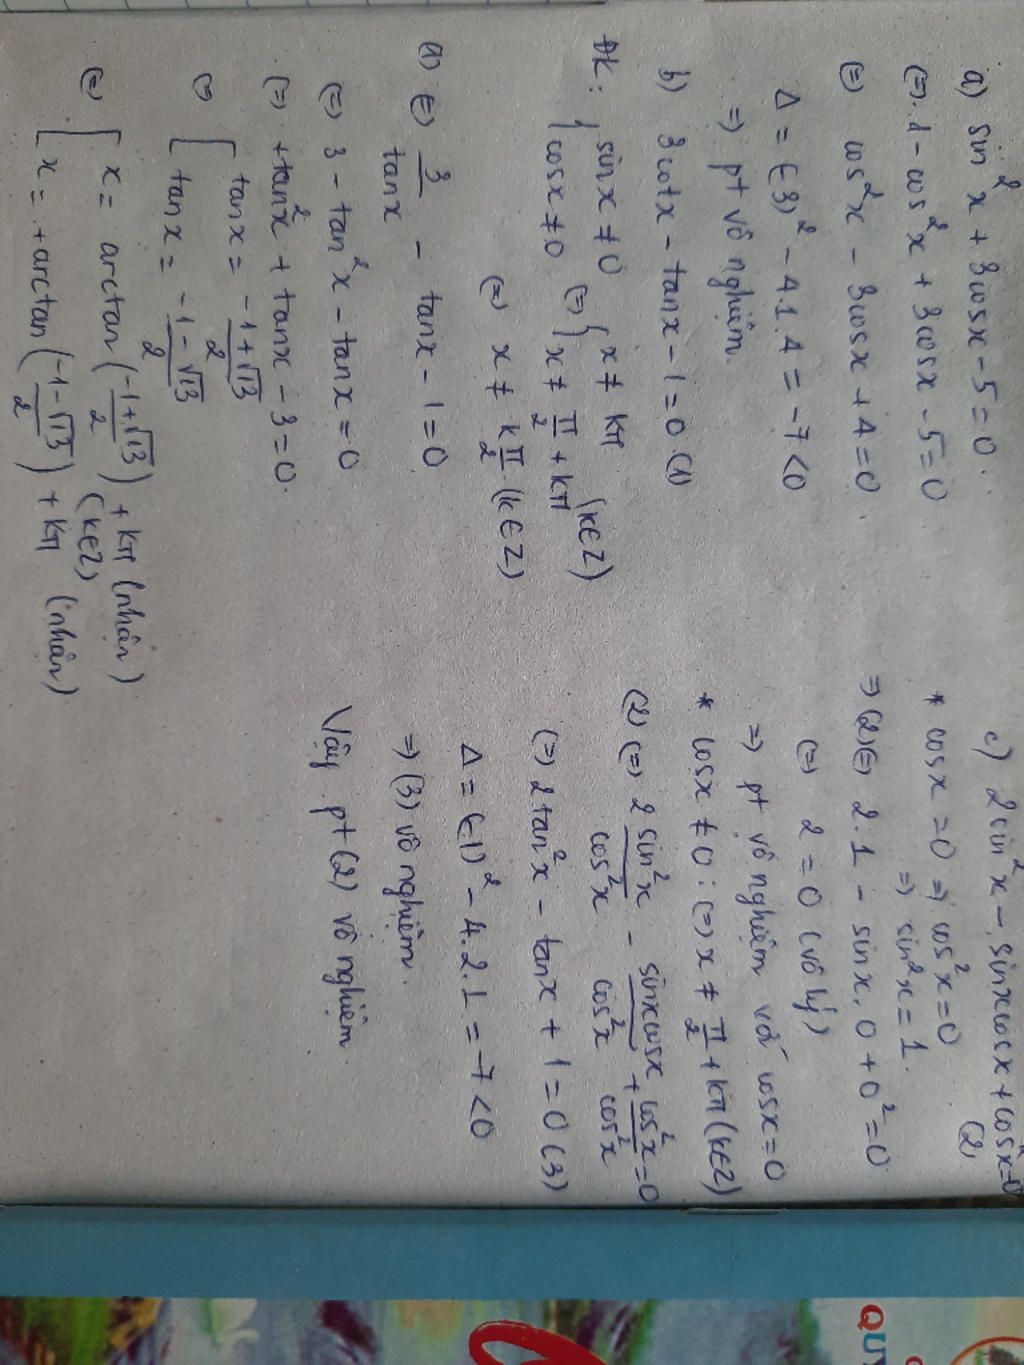 a) sin²x + 3cosx - 5 = 0.
(=) 1 - cos²x + 3cosx - 5 = 0
(=) cos²x - 3cosx + 4 = 0
Δ = (-3)² - 4.1.4 = -7 < 0
=> pt vô nghiệm.
b) 3cotx - tanx - 1 = 0 (1)
Đk: { sinx ≠ 0 (=) { x ≠ kπ
{ cosx ≠ 0 { x ≠ π/2 + kπ (k∈Z)
(=) x ≠ kπ/2 (k∈Z)
(1) (=) 3/tanx - tanx - 1 = 0
(=) 3 - tan²x - tanx = 0
(=) tan²x + tanx - 3 = 0.
(=) [ tanx = (-1+√13)/2
[ tanx = (-1-√13)/2
(=) [ x = arctan((-1+√13)/2) + kπ (nhận)
(k∈Z)
[ x = arctan((-1-√13)/2) + kπ (nhận)
c) 2sin²x - sinxcosx + cos²x = 0
(2)
* cosx = 0 => cos²x = 0
=> sin²x = 1.
=> (2) (=) 2.1 - sinx.0 + 0² = 0
(=) 2 = 0 (vô lý)
=> pt vô nghiệm với cosx = 0
* cosx ≠ 0 : (=) x ≠ π/2 + kπ (k∈Z)
(2) (=) 2 sin²x/cos²x - sinxcosx/cos²x + cos²x/cos²x = 0
(=) 2tan²x - tanx + 1 = 0 (3)
Δ = (-1)² - 4.2.1 = -7 < 0
=> (3) vô nghiệm.
Vậy pt (2) vô nghiệm.